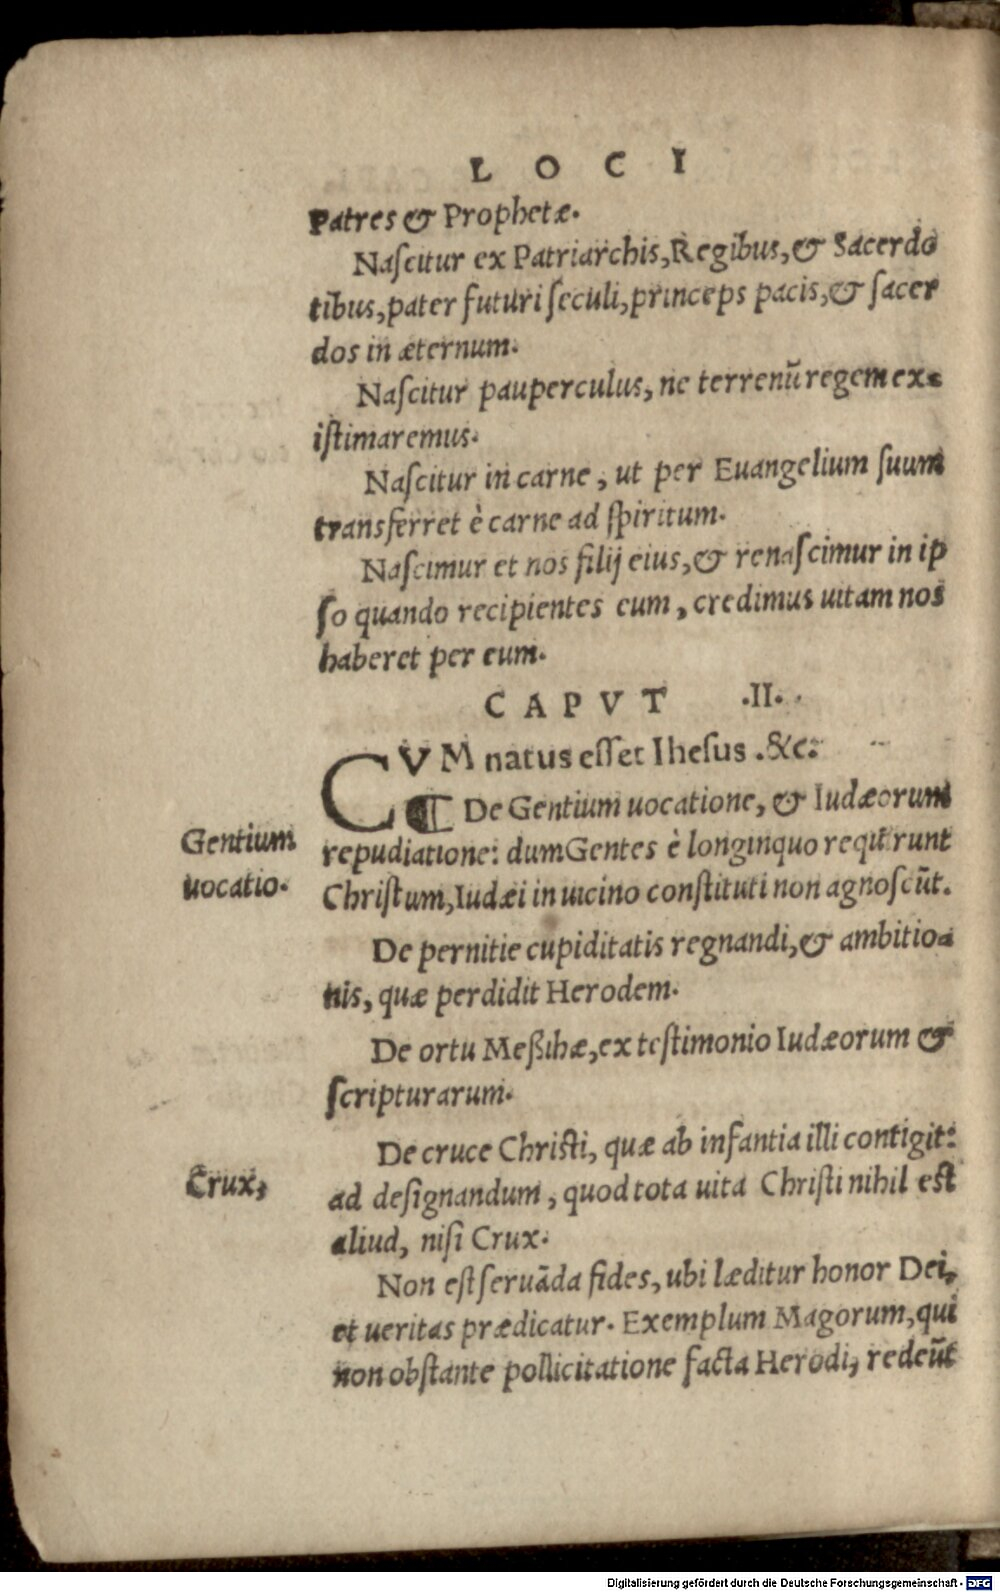 LOCI
Patres & Prophetæ.
Naſcitur ex Patriarchis, Regibus, & Sacerdo
tibus, pater futuri ſeculi, princeps pacis, & ſacer
dos in æternum.
Naſcitur pauperculus, ne terrenũ regem ex-
iſtimaremus.
Naſcitur in carne, ut per Euangelium ſuum
transferret è carne ad ſpiritum.
Naſcimur et nos filij eius, & renaſcimur in ip
ſo quando recipientes eum, credimus uitam nos
haberet per eum.
CAPVT .II.
CVM natus eſſet Iheſus .&c:
¶ De Gentium uocatione, & Iudæorum
Gentium
repudiatione: dum Gentes è longinquo requirunt
uocatio.
Chriſtum, Iudæi in uicino conſtituti non agnoſcũt.
De pernitie cupiditatis regnandi, & ambitio-
nis, quæ perdidit Herodem.
De ortu Meßihæ, ex teſtimonio Iudæorum &
ſcripturarum.
De cruce Chriſti, quæ ab infantia illi contigit:
Crux,
ad deſignandum, quod tota uita Chriſti nihil eſt
aliud, niſi Crux.
Non eſt ſeruãda fides, ubi læditur honor Dei,
et ueritas prædicatur. Exemplum Magorum, qui
non obſtante pollicitatione facta Herodi, redeũt
Digitalisierung gefördert durch die Deutsche Forschungsgemeinschaft - DFG